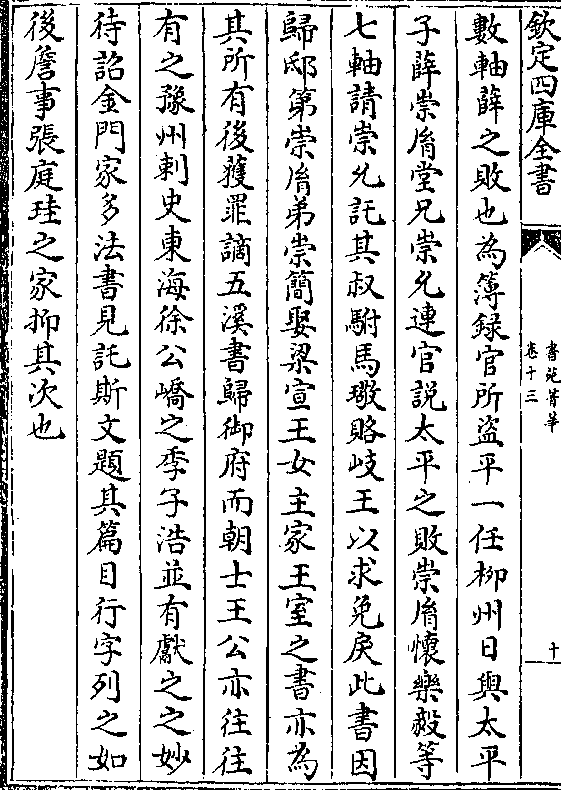 欽定四庫全書
書苑菁華
卷十三
十
數軸薛之敗也為簿録官所盜平一任郴州日與太平
子薛崇𦙍堂兄崇允連官說太平之敗崇𦙍懷樂毅等
七軸請崇允託其叔駙馬璥賂岐王以求免戾此書因
歸邸第崇𦙍弟崇簡娶梁宣王女主家王室之書亦為
其所有後獲罪謫五溪書歸御府而朝士王公亦往往
有之豫州刺史東海徐公嶠之季子浩並有獻之之妙
待詔金門家多法書見託斯文題其篇目行字列之如
後詹事張庭珪之家抑其次也